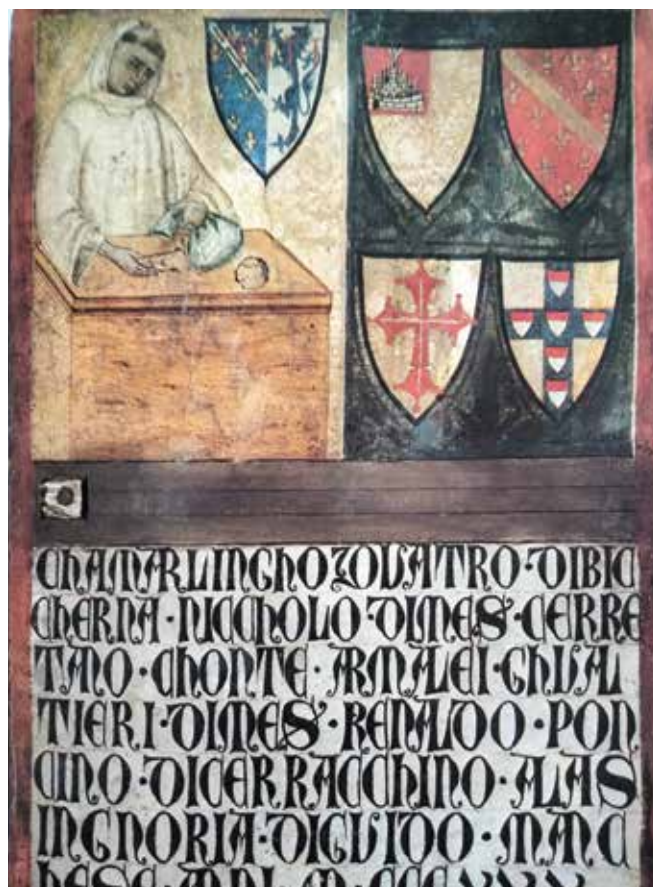 CHAMARLINGHO QUATRO · DIBIC
CHERNA · NICCHOLO DIMES · CERRE
TANO · CHONTE · ARMALEI · GHUAL
TIERI · DIMES · RENALDO · PON
CINO · DICERRACCHINO · ALAS
INGNORIA · DIGUIDO · MARC
HESE